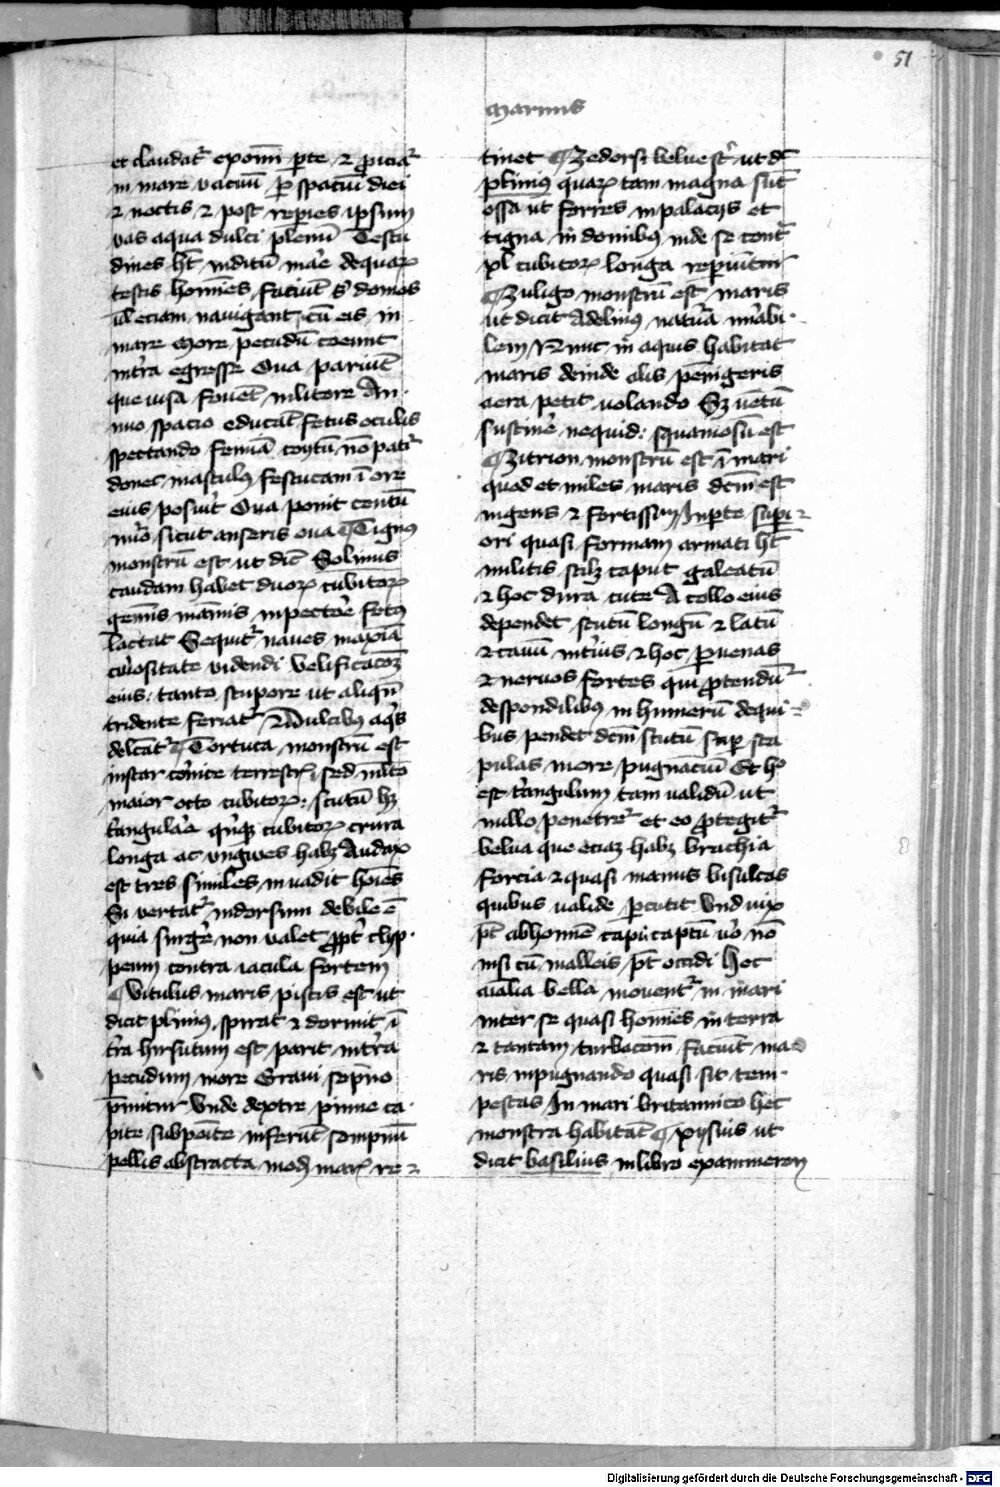 51
marinis
et claudat᷑ ex om̄i p̲te ⁊ p̲iciat᷑
in mare vacuū p̲ spaciū diei
⁊ noctis ⁊ post rep̲ies ip̄sum
vas aqua dulci plenū Testu
dines hn̄t inditū mare de quaꝝ
testis hoīnes faciūt s̄ domos
ul' eciam nauigant cū eis in
mare More pecudū coeunt
in t̄ra egresse Oua pariūt
que iusa fouēt in litore An
nuo spacio educāt fetus oculis
spectando femīa coytū nō patit᷑
donec masculꝰ festucam ī ore
eius posuit Oua ponit centū
nu̅o sicut anseris oua Tignus
monstrū est ut dic̄ Solinus
caudam habet duoꝝ cubitoꝝ
gemīs māmis in pectore fetꝰ
lactat Sequit᷑ naues maxīa
curiositate videndi velificac̄oēꝫ
eius tanto stupore ut aliqn̄
tridente feriat᷑ Dulcibus aq̄s
delc̄at᷑ Tortuca monstrū est
instar tortuce terrestris sed m̄lto
maior octo cubitoꝝ scutū hꝫ
t̄angulare q̄nqꝫ cubitoꝝ crura
longa ac ungues habꝫ Audax
est tres simul' inuadit hoīes
Si vertat᷑ in dorsum debile ē
quia surgere non valet p̲pt̄ clyp
peum contra iacula fortem
Vitulus maris piscis est ut
dicit plinius spirat ⁊ dormit ī
t̄ra hirsutum est parit in t̄ra
pecudum more Graui sopno
p̄mitur Unde dextre pinne ca
pite subpo̅ite inferūt sompnū
pellis abstracta moduꝫ mar̄ re
tinet Zedorsi belue st̄ ut dt̄
plinius quaꝝ tam magna sūt
ossa ut fores in palacijs et
tigna in domibꝰ inde se cont̄
xl cubitoꝝ longa rep̲iūtur
Zuligo monstrū est maris
ut dicit Adelinus natura mirabi
lem Nunc in aquis habitat
maris deinde alis pēnigeris
aera petit volando Sꝫ ventū
sustine' nequid squamosū est
Zitrion monstrū est ī mari
quod et miles maris dc̄m est
ingens ⁊ fortissim̄ In p̲te sup̲i
ori quasi formam armati hꝫ
militis scilꝫ caput galeatū
⁊ hoc dura cute A collo eius
dependet scutū longū ⁊ latū
⁊ cauū int̄ius ⁊ hoc p̲ venas
⁊ neruos fortes qui p̲tendūt᷑
de spondilibꝰ in humerū de qui
bus pendet dc̄m scutū sup̲ sca
pulas more pugnaciū Et hoc
est t̄angulum tam validū ut
nullo penetret᷑ et eo p̲tegit᷑
belua que eciaꝫ habꝫ brachia
forcia ⁊ quasi manus bisulcas
quibus valide p̲cutit Und vix
pt̄ ab homīe capi captū v̄o nō
nisi cū malleis pt̄ occidi Hec
aīalia bella mouent᷑ in mari
inter se quasi hoīnes in terra
⁊ tantam turbac̄oem faciūt ma
ris inpugnando quasi sit tem
pestas In mari britannico hec
monstra habitāt Xysuis ut
dicit basilius in libro exameron
Digitalisierung gefördert durch die Deutsche Forschungsgemeinschaft - DFG